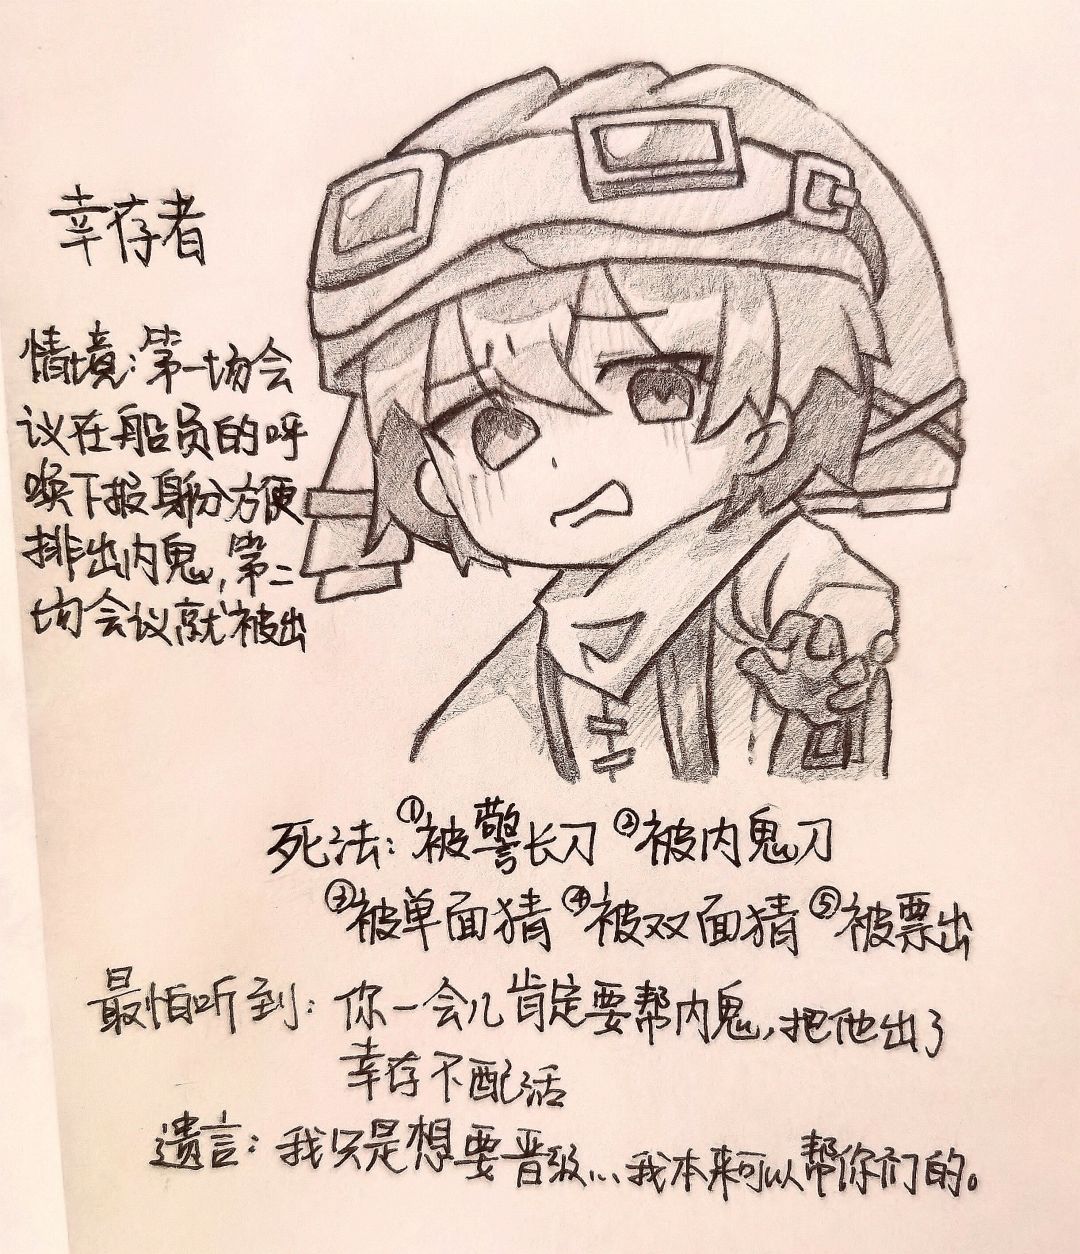 幸存者
情境:第一场会
议在船员的呼
唤下报身份方便
排出内鬼,第二
场会议就被出
死法:①被警长刀 ②被内鬼刀
③被单面猜 ④被双面猜 ⑤被票出
最怕听到:你一会儿肯定要帮内鬼,把他出了
幸存不配活
遗言:我只是想要晋级...我本来可以帮你们的。